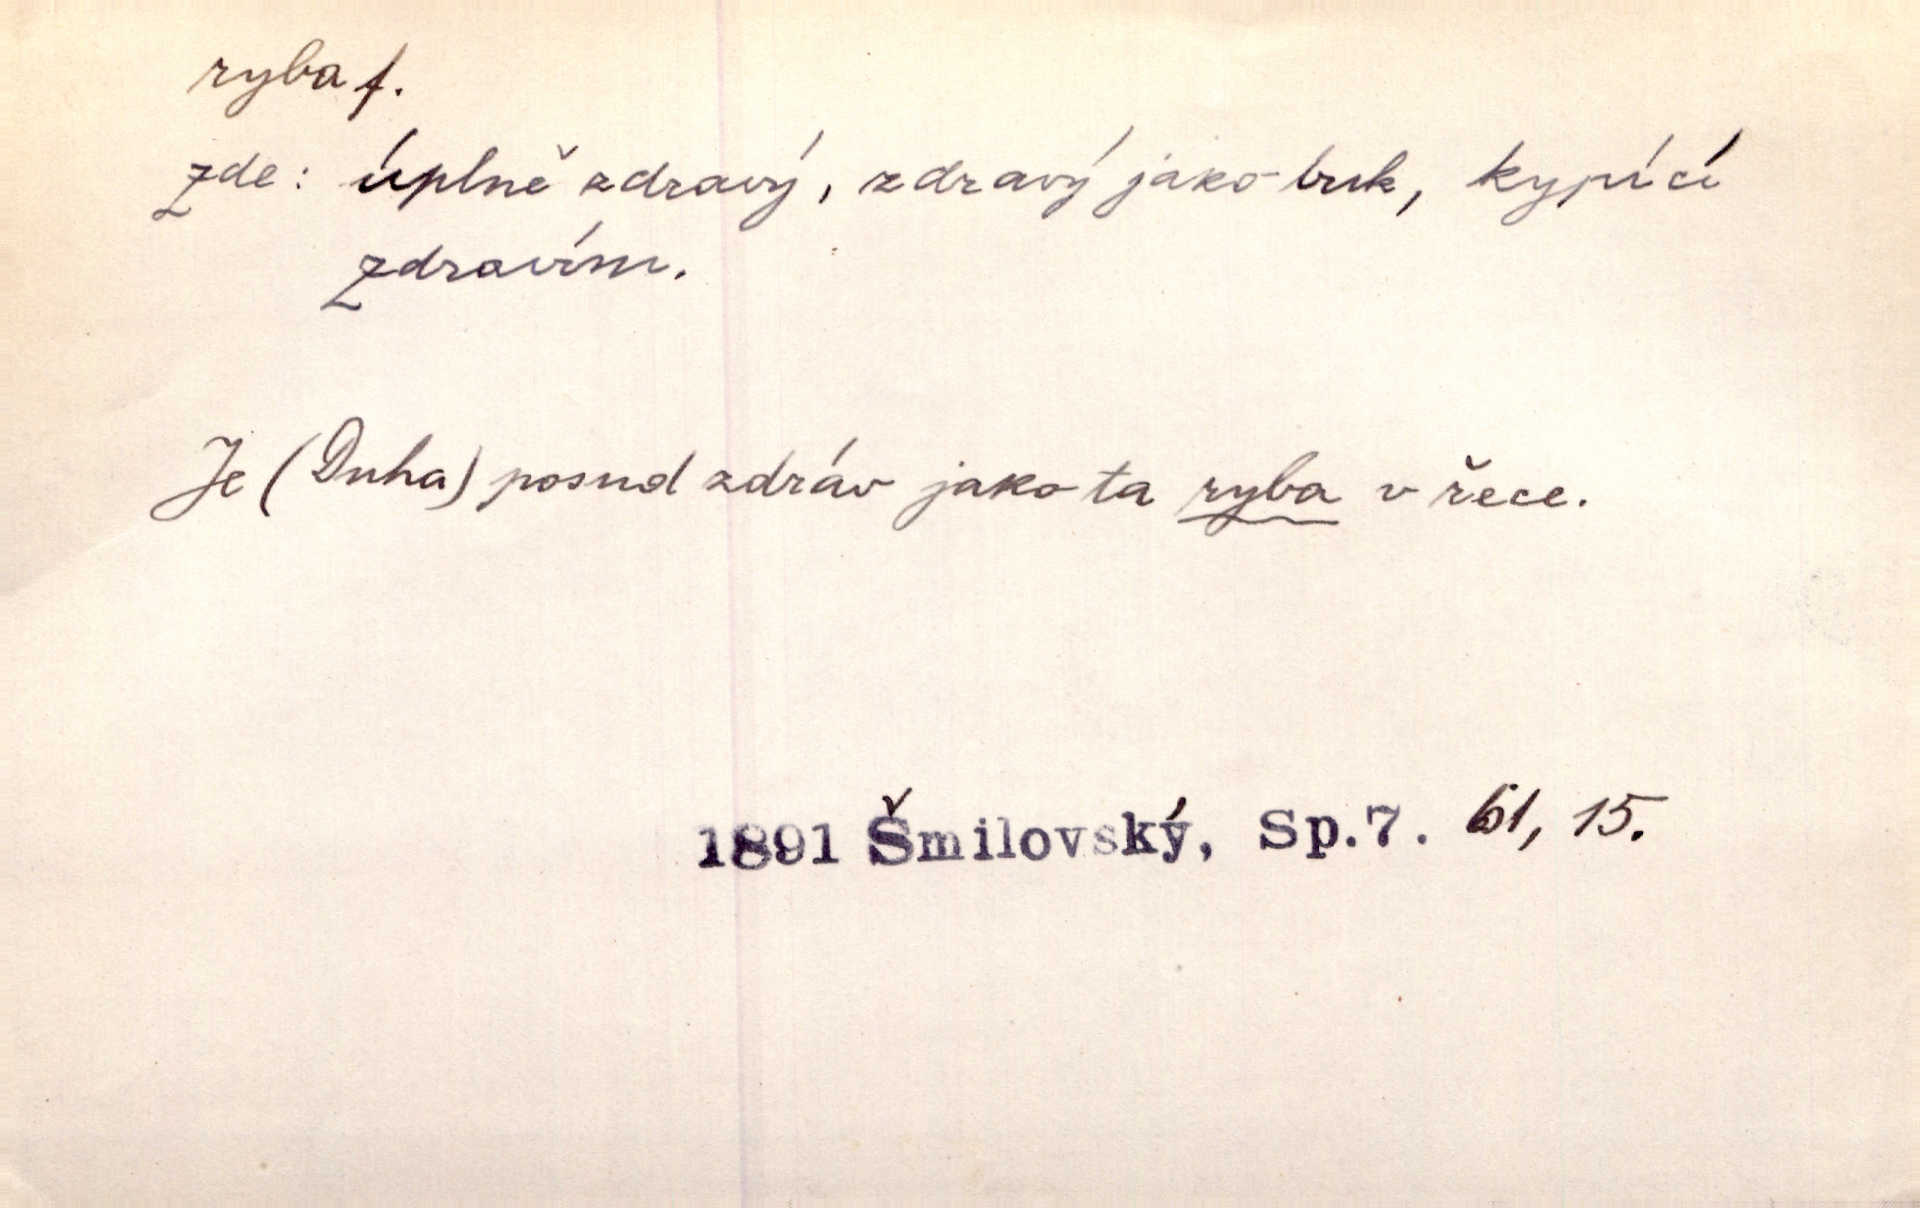 ryba f.
zde: úplně zdravý, zdravý jako buk, kypící
zdravím.
Je (Duha) posud zdráv jako ta ryba v řece.
1891 Šmilovský, Sp.7. 61, 15.